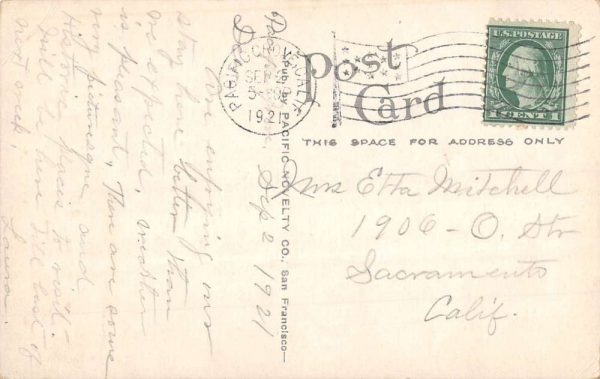 Pacific Grove
Sep 2 1921
Dear
Are enjoying our
stay here better than
we expected, weather
is pleasant. There are some
very picturesque and
Historic places to visit.
Will be here till last of
next week
Laura.
PACIFIC GROVE, CALIF.
SEP
5-
1921
Post
Card
THIS SPACE FOR ADDRESS ONLY
Pub. by PACIFIC NOVELTY CO., San Francisco
U.S. POSTAGE
1 CENT 1
Mrs Etta Mitchell
1906-O. Str
Sacramento
Calif.